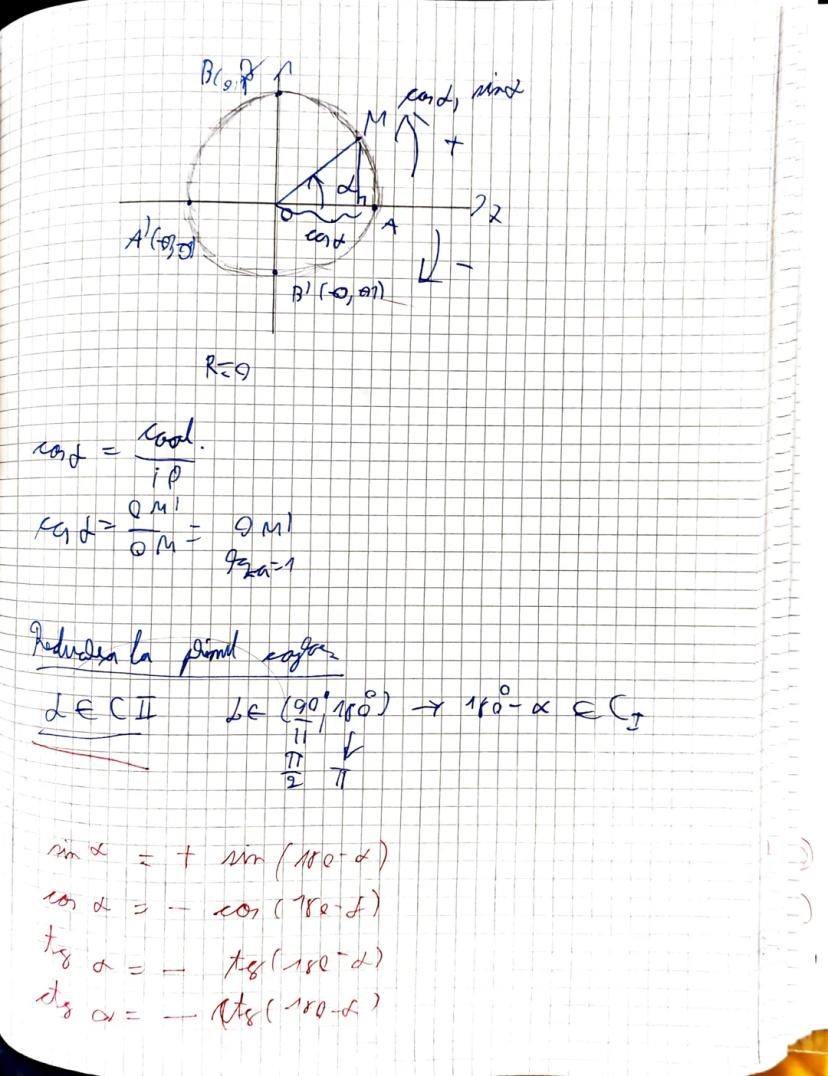 cos α, sin α
M
+
α
O
A
x
cos α
A'
-
B'
cos α = cat al.
ip
cos α = OM'
OM = OM'
Reducerea la primul cadran
α ∈ C II α ∈ (90°, 180°) → 180° - α ∈ C I
π/2 π
sin α = + sin (180-α)
cos α = - cos (180-α)
tg α = - tg (180-α)
ctg α = - ctg (180-α)